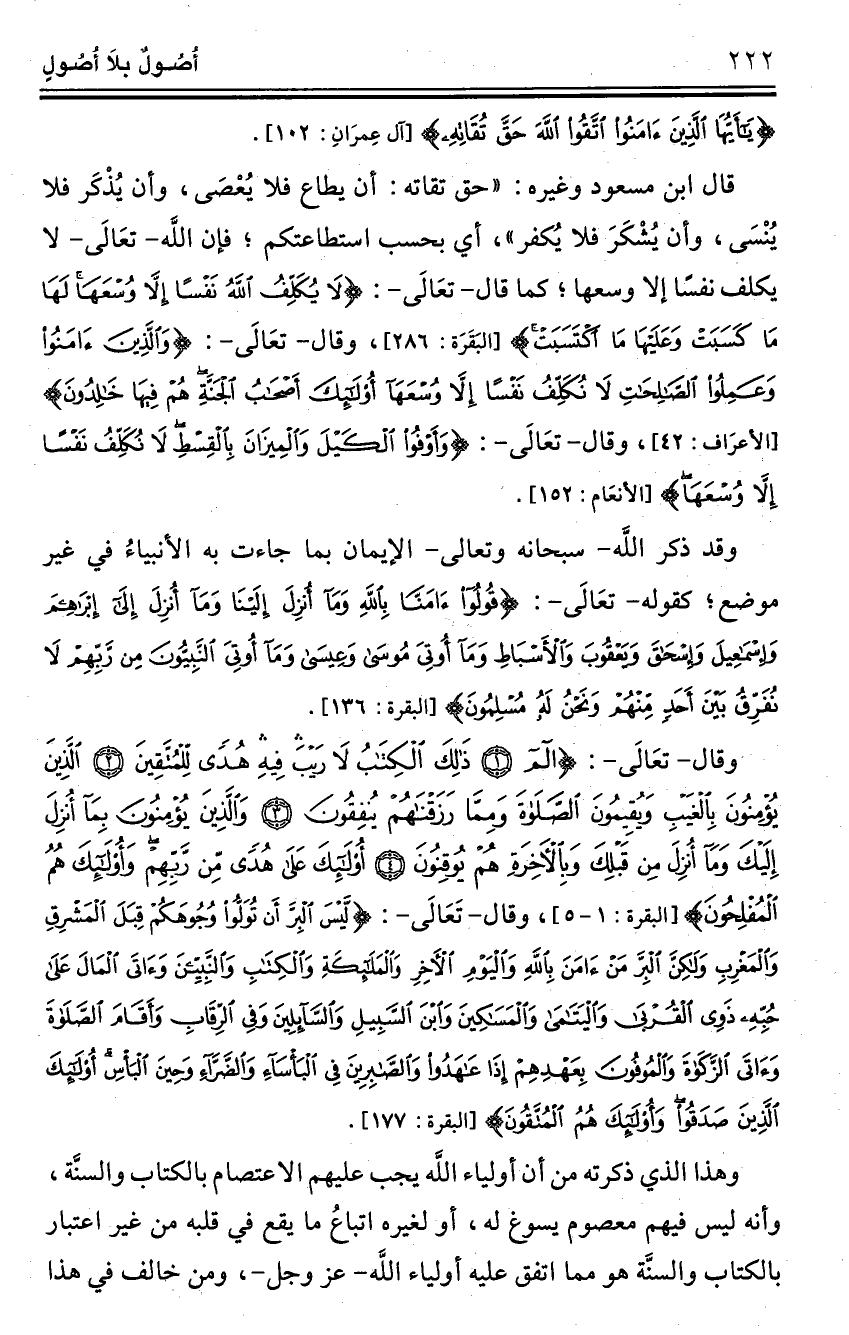 ٢٢٢ أُصُولٌ بِلاَ أُصُولٍ
﴿يَٰٓأَيُّهَا ٱلَّذِينَ ءَامَنُوا۟ ٱتَّقُوا۟ ٱللَّهَ حَقَّ تُقَاتِهِۦ﴾ [آل عِمرَانِ : ١٠٢] .
قال ابن مسعود وغيره : «حق تقاته : أن يطاع فلا يُعْصَى ، وأن يُذْكَر فلا
يُنْسَى ، وأن يُشْكَرَ فلا يُكفر» ، أي بحسب استطاعتكم ؛ فإن الله- تعَالَى- لا
يكلف نفسًا إلا وسعها ؛ كما قال- تعَالَى- : ﴿لَا يُكَلِّفُ ٱللَّهُ نَفْسًا إِلَّا وُسْعَهَا ۚ لَهَا
مَا كَسَبَتْ وَعَلَيْهَا مَا ٱكْتَسَبَتْ ۗ﴾ [البَقَرَة : ٢٨٦] ، وقال- تعَالَى- : ﴿وَٱلَّذِينَ ءَامَنُوا۟
وَعَمِلُوا۟ ٱلصَّٰلِحَٰتِ لَا نُكَلِّفُ نَفْسًا إِلَّا وُسْعَهَآ أُو۟لَٰٓئِكَ أَصْحَٰبُ ٱلْجَنَّةِ ۖ هُمْ فِيهَا خَٰلِدُونَ﴾
[الأعرَاف : ٤٢] ، وقال- تعَالَى- : ﴿وَأَوْفُوا۟ ٱلْكَيْلَ وَٱلْمِيزَانَ بِٱلْقِسْطِ ۖ لَا نُكَلِّفُ نَفْسًا
إِلَّا وُسْعَهَا ۖ﴾ [الأنعَام : ١٥٢] .
وقد ذكر اللَّه- سبحانه وتعالى- الإيمان بما جاءت به الأنبياءُ في غير
موضع ؛ كقوله- تعَالَى- : ﴿قُولُوٓا۟ ءَامَنَّا بِٱللَّهِ وَمَآ أُنزِلَ إِلَيْنَا وَمَآ أُنزِلَ إِلَىٰٓ إِبْرَٰهِۦمَ
وَإِسْمَٰعِيلَ وَإِسْحَٰقَ وَيَعْقُوبَ وَٱلْأَسْبَاطِ وَمَآ أُوتِىَ مُوسَىٰ وَعِيسَىٰ وَمَآ أُوتِىَ ٱلنَّبِيُّونَ مِن رَّبِّهِمْ لَا
نُفَرِّقُ بَيْنَ أَحَدٍ مِّنْهُمْ وَنَحْنُ لَهُۥ مُسْلِمُونَ﴾ [البقرة : ١٣٦] .
وقال- تعَالَى- : ﴿الٓمٓ ١ ذَٰلِكَ ٱلْكِتَٰبُ لَا رَيْبَ ۛ فِيهِ ۛ هُدًى لِّلْمُتَّقِينَ ٢ ٱلَّذِينَ
يُؤْمِنُونَ بِٱلْغَيْبِ وَيُقِيمُونَ ٱلصَّلَوٰةَ وَمِمَّا رَزَقْنَٰهُمْ يُنفِقُونَ ٣ وَٱلَّذِينَ يُؤْمِنُونَ بِمَآ أُنزِلَ
إِلَيْكَ وَمَآ أُنزِلَ مِن قَبْلِكَ وَبِٱلْءَاخِرَةِ هُمْ يُوقِنُونَ ٤ أُو۟لَٰٓئِكَ عَلَىٰ هُدًى مِّن رَّبِّهِمْ ۖ وَأُو۟لَٰٓئِكَ هُمُ
ٱلْمُفْلِحُونَ﴾ [البقرة : ١-٥] ، وقال- تَعَالَى- : ﴿لَّيْسَ ٱلْبِرَّ أَن تُوَلُّوا۟ وُجُوهَكُمْ قِبَلَ ٱلْمَشْرِقِ
وَٱلْمَغْرِبِ وَلَٰكِنَّ ٱلْبِرَّ مَنْ ءَامَنَ بِٱللَّهِ وَٱلْيَوْمِ ٱلْءَاخِرِ وَٱلْمَلَٰٓئِكَةِ وَٱلْكِتَٰبِ وَٱلنَّبِيِّـۧنَ وَءَاتَى ٱلْمَالَ عَلَىٰ
حُبِّهِۦ ذَوِى ٱلْقُرْبَىٰ وَٱلْيَتَٰمَىٰ وَٱلْمَسَٰكِينَ وَٱبْنَ ٱلسَّبِيلِ وَٱلسَّآئِلِينَ وَفِى ٱلرِّقَابِ وَأَقَامَ ٱلصَّلَوٰةَ
وَءَاتَى ٱلزَّكَوٰةَ وَٱلْمُوفُونَ بِعَهْدِهِمْ إِذَا عَٰهَدُوا۟ وَٱلصَّٰبِرِينَ فِى ٱلْبَأْسَآءِ وَٱلضَّرَّآءِ وَحِينَ ٱلْبَأْسِ ۗ أُو۟لَٰٓئِكَ
ٱلَّذِينَ صَدَقُوا۟ ۖ وَأُو۟لَٰٓئِكَ هُمُ ٱلْمُتَّقُونَ﴾ [البقرة : ١٧٧] .
وهذا الذي ذكرته من أن أولياء اللَّه يجب عليهم الاعتصام بالكتاب والسنَّة ،
وأنه ليس فيهم معصوم يسوغ له ، أو لغيره اتباعُ ما يقع في قلبه من غير اعتبار
بالكتاب والسنَّة هو مما اتفق عليه أولياء اللَّه- عز وجل- ، ومن خالف في هذا